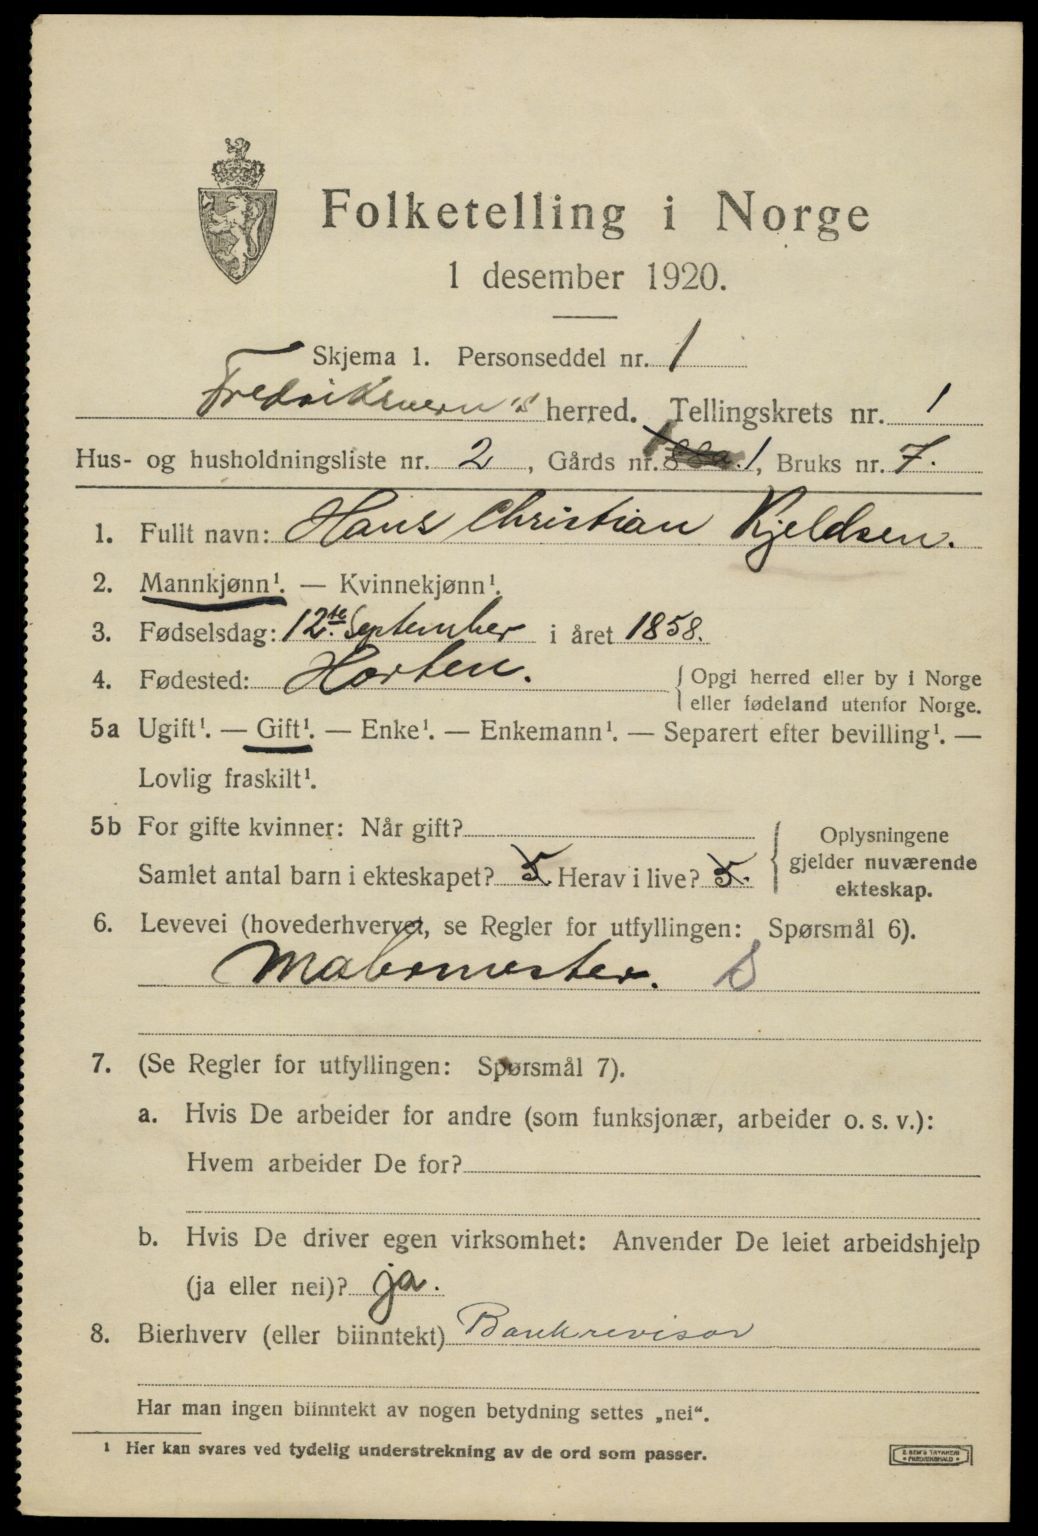 Folketelling i Norge
1 desember 1920.
Skjema 1. Personseddel nr. 1
Fredriksvern's herred. Tellingskrets nr. 1
Hus- og husholdningsliste nr. 2, Gårds nr. 1, Bruks nr. 7.
1. Fullt navn: Hans Christian Kjeldsen.
2. Mannkjønn¹. — Kvinnekjønn¹.
3. Fødselsdag: 12te September i året 1858.
4. Fødested: Horten. Opgi herred eller by i Norge
eller fødeland utenfor Norge.
5a Ugift¹. — Gift¹. — Enke¹. — Enkemann¹. — Separert efter bevilling¹. —
Lovlig fraskilt¹.
5b For gifte kvinner: Når gift?
Samlet antal barn i ekteskapet? 5. Herav i live? 5.
Oplysningene
gjelder nuværende
ekteskap.
6. Levevei (hovederhvervet, se Regler for utfyllingen: Spørsmål 6).
Malermester. S
7. (Se Regler for utfyllingen: Spørsmål 7).
a. Hvis De arbeider for andre (som funksjonær, arbeider o. s. v.):
Hvem arbeider De for?
b. Hvis De driver egen virksomhet: Anvender De leiet arbeidshjelp
(ja eller nei)? ja.
8. Bierhverv (eller biinntekt) Bankrevisor
Har man ingen biinntekt av nogen betydning settes „nei“.
¹ Her kan svares ved tydelig understrekning av de ord som passer.